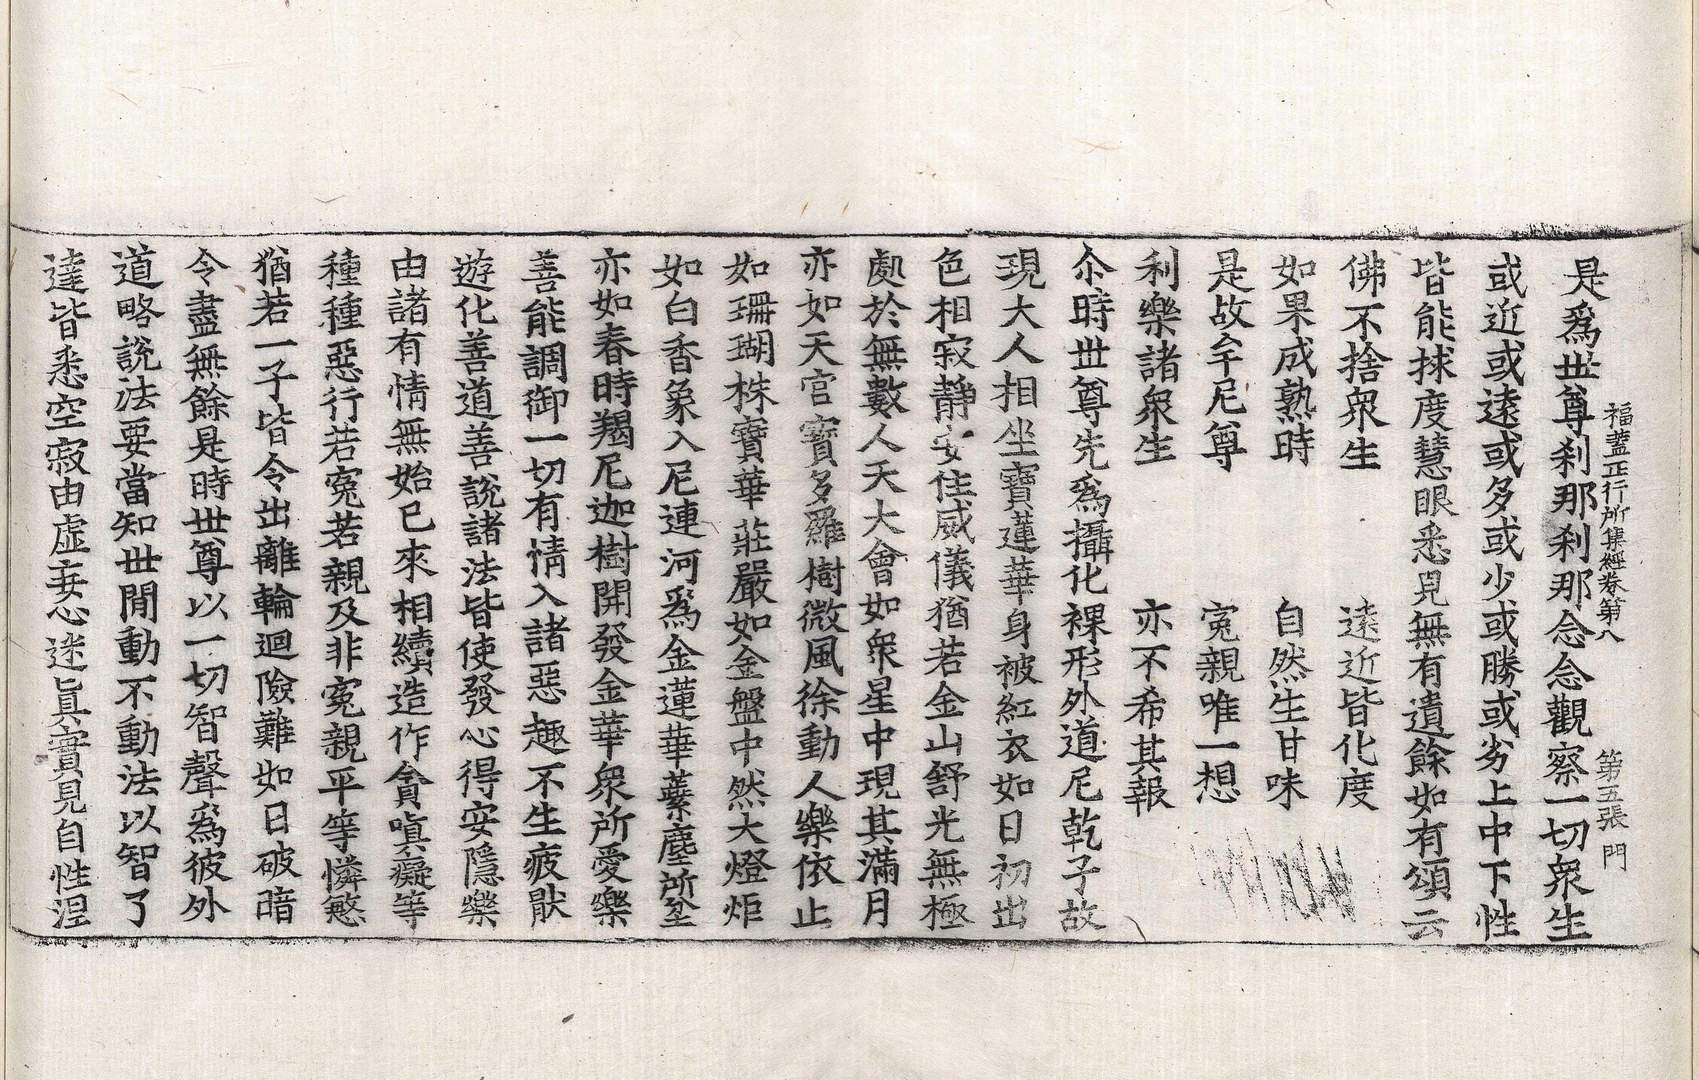 福蓋正行所集經卷第八 第五張 門
是爲世尊刹那刹那念念觀察一切衆生
或近或遠或多或少或勝或劣上中下性
皆能捄度慧眼悉見無有遺餘如有頌云
佛不捨衆生 遠近皆化度
如果成熟時 自然生甘味
是故牟尼尊 寃親唯一想
利樂諸衆生 亦不希其報
尒時世尊先爲攝化裸形外道尼乾子故
現大人相坐寶蓮華身被紅衣如日初出
色相寂靜安住威儀猶若金山舒光無極
處於無數人天大會如衆星中現其滿月
亦如天宮寶多羅樹微風徐動人樂依止
如珊瑚株寶華莊嚴如金盤中然大燈炬
如白香象入尼連河爲金蓮華蘂塵所坌
亦如春時羯尼迦樹開發金華衆所愛樂
善能調御一切有情入諸惡趣不生疲猒
遊化善道善說諸法皆使發心得安隱樂
由諸有情無始已來相續造作貪嗔癡等
種種惡行若寃若親及非寃親平等憐愍
猶若一子皆令出離輪迴險難如日破暗
令盡無餘是時世尊以一切智聲爲彼外
道略說法要當知世閒動不動法以智了
達皆悉空寂由虛妄心迷眞實見自性涅